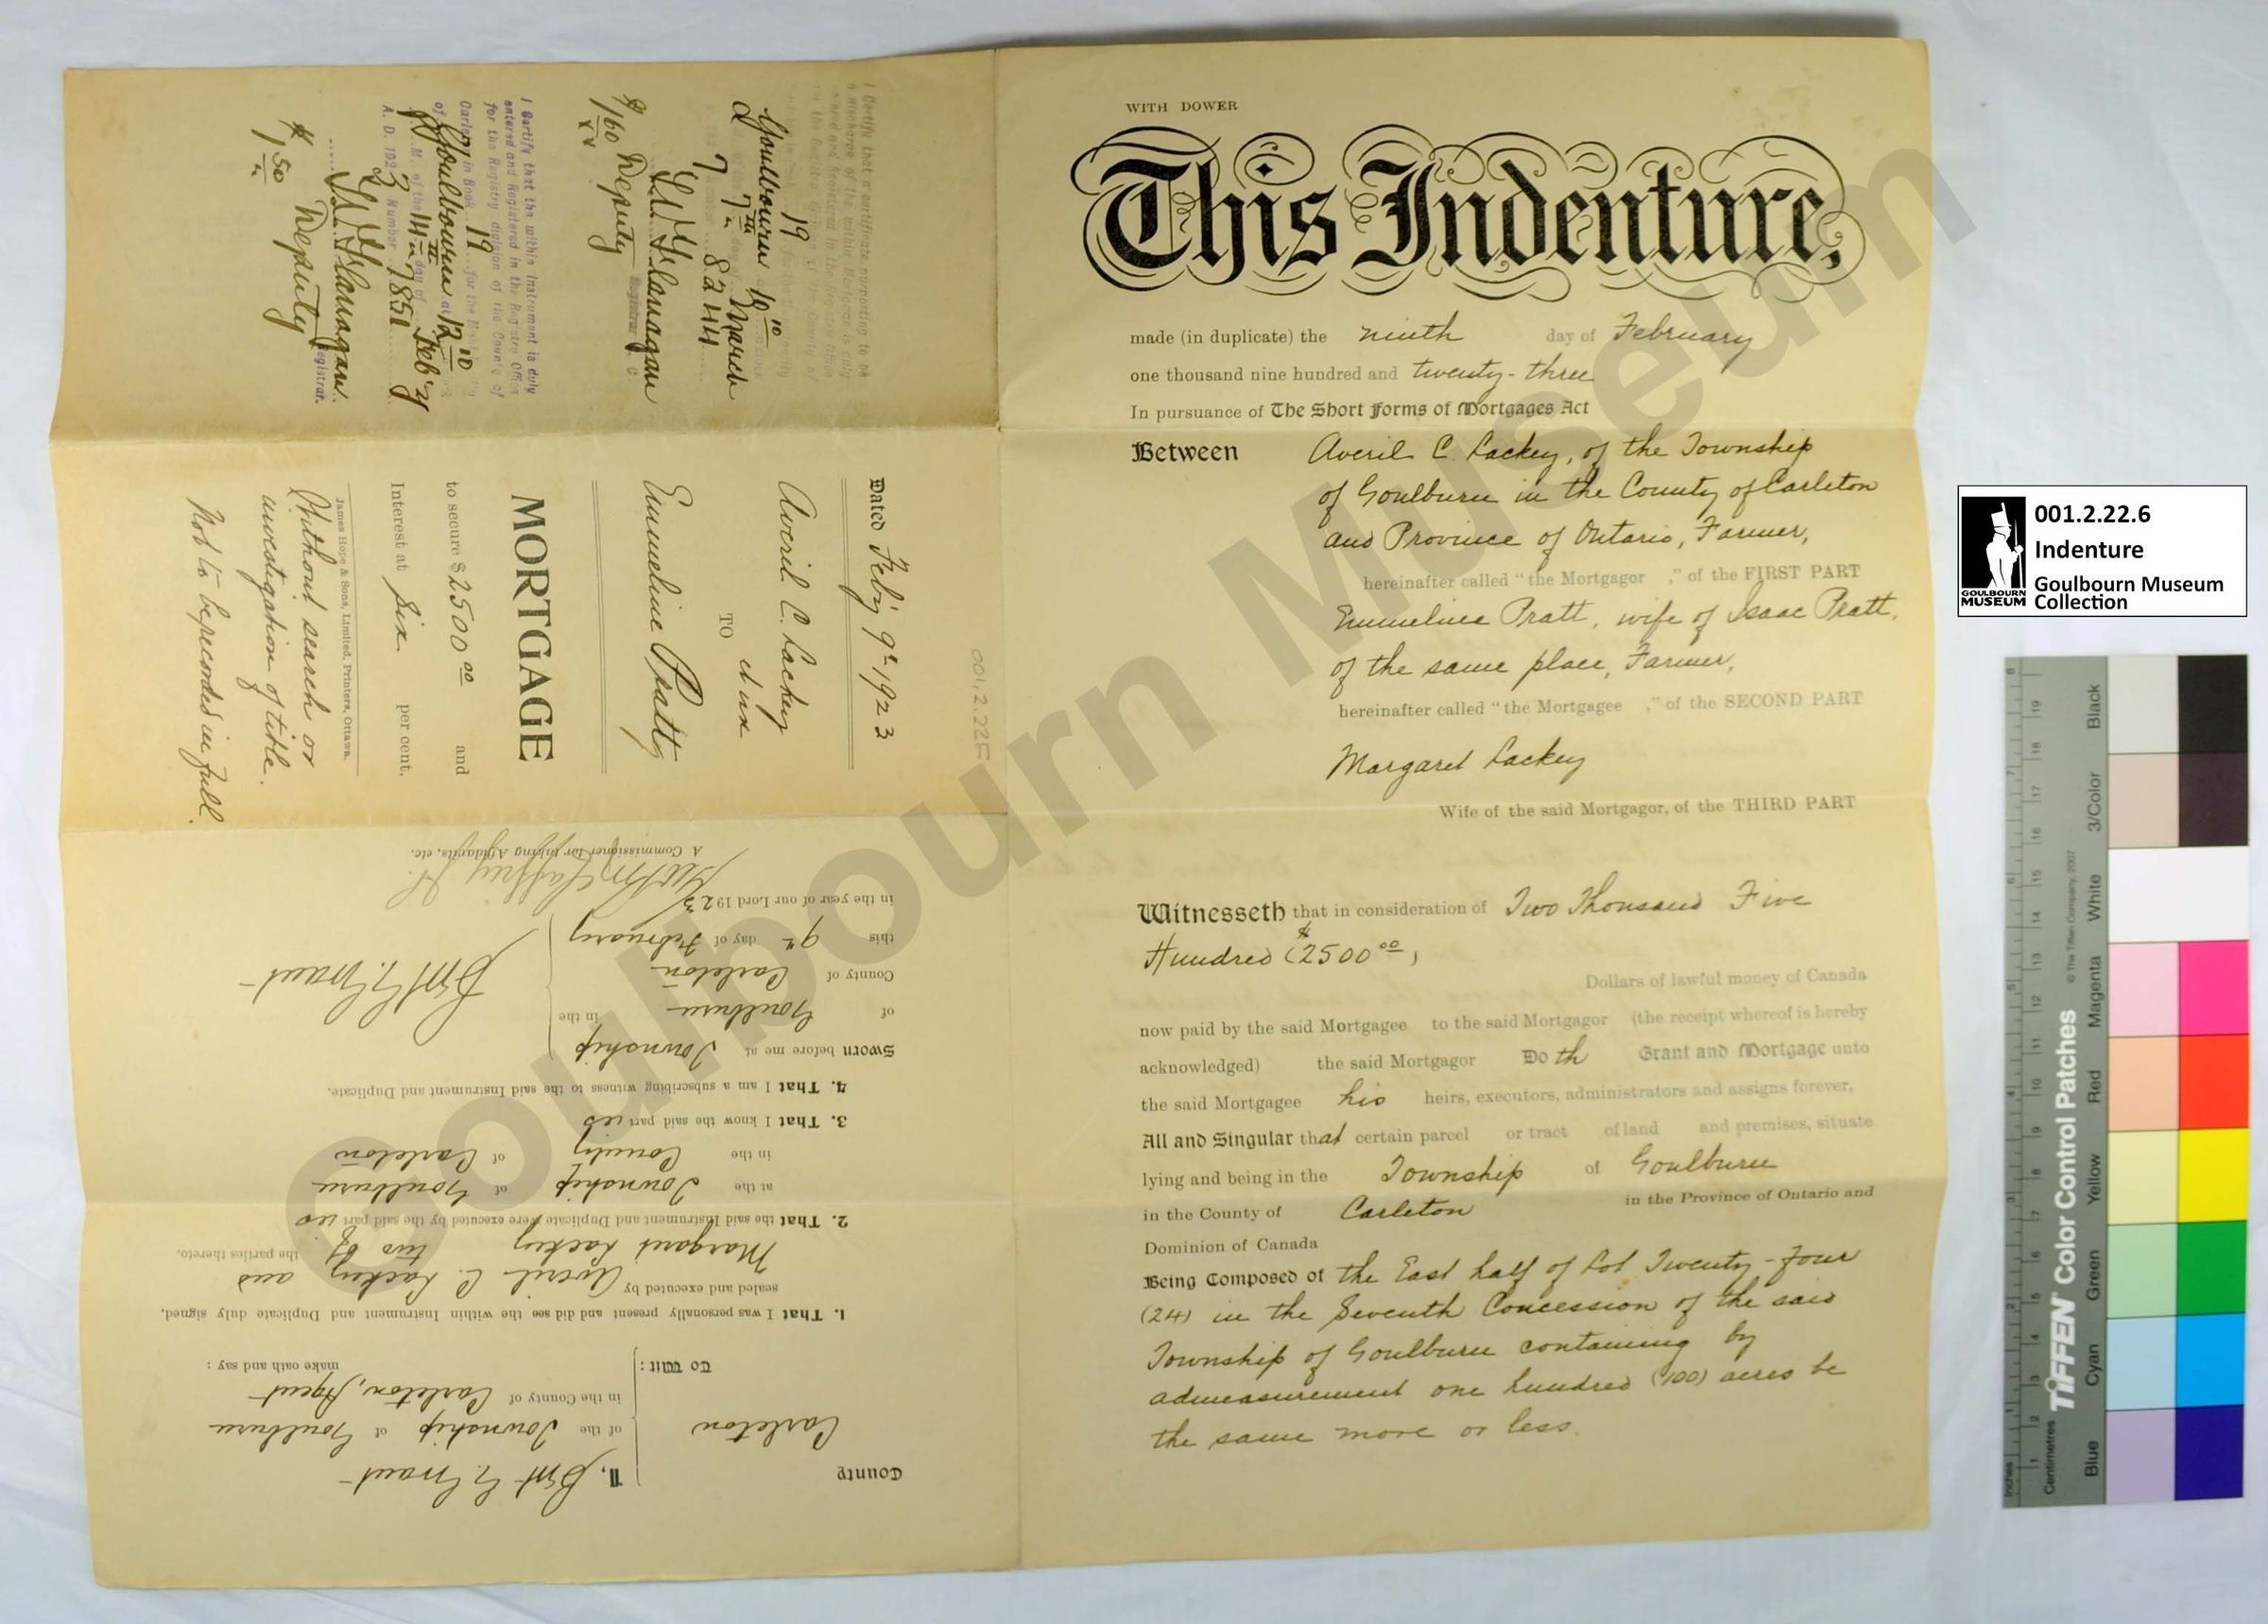 WITH DOWER
This Indenture,
made (in duplicate) the ninth day of February
one thousand nine hundred and twenty-three
In pursuance of The Short Forms of Mortgages Act
Between Averil C. Lackey, of the Township
of Goulburn in the County of Carleton
and Province of Ontario, Farmer,
hereinafter called "the Mortgagor ," of the FIRST PART
Emmeline Pratt, wife of Isaac Pratt,
of the same place, Farmer,
hereinafter called "the Mortgagee ," of the SECOND PART
Margaret Lackey
Wife of the said Mortgagor, of the THIRD PART
Witnesseth that in consideration of Two Thousand Five
Hundred ($2500 00)
Dollars of lawful money of Canada
now paid by the said Mortgagee to the said Mortgagor (the receipt whereof is hereby
acknowledged) the said Mortgagor Doth Grant and Mortgage unto
the said Mortgagee his heirs, executors, administrators and assigns forever,
All and Singular that certain parcel or tract of land and premises, situate
lying and being in the Township of Goulburn
in the County of Carleton in the Province of Ontario and
Dominion of Canada
Being Composed of the East half of Lot Twenty-four
(24) in the Seventh Concession of the said
Township of Goulburn containing by
admeasurement one hundred (100) acres be
the same more or less.
Dated Feb'y 9th 1923
Averil C. Lackey
et ux
TO
Emmeline Pratt
MORTGAGE
to secure $2500 00 and
Interest at Six per cent.
James Hope & Sons, Limited, Printers, Ottawa.
Without search or
investigation of title.
Not to be recorded in full.
001.2.22F
I Certify that a certificate purporting to be
a discharge of the within Mortgage is duly
19
Goulbourn 10 10
7th March
7 8244
L. W. Flanagan
Deputy Registrar
$1 60
I Certify that the within Instrument is duly
entered and Registered in the Registry Office
for the Registry division of the County of
Carleton in Book 19 for the
of Goulbourn at 12 10
P.M. of the 14th day of Feb'y
A. D. 1923 Number 7851
L. W. Flanagan
Deputy Registrar.
$1 50
County
Carleton
To Wit:
I,
of the Township of Goulburn
in the County of Carleton, Agent
make oath and say:
1. That I was personally present and did see the within Instrument and Duplicate duly signed,
sealed and executed by Averil C. Lackey and
Margaret Lackey two of the parties thereto.
2. That the said Instrument and Duplicate were executed by the said parties
at the Township of Goulburn
in the County of Carleton
3. That I know the said parties
4. That I am a subscribing witness to the said Instrument and Duplicate.
Sworn before me at Township
of Goulburn in the
County of Carleton
this 9th day of February
in the year of our Lord 1923
A Commissioner for taking Affidavits, etc.
Goulbourn Museum
GOULBOURN
MUSEUM
001.2.22.6
Indenture
Goulbourn Museum
Collection
TIFFEN Color Control Patches
© The Tiffen Company, 2007
Inches
Centimetres
Blue Cyan Green Yellow Red Magenta White 3/Color Black